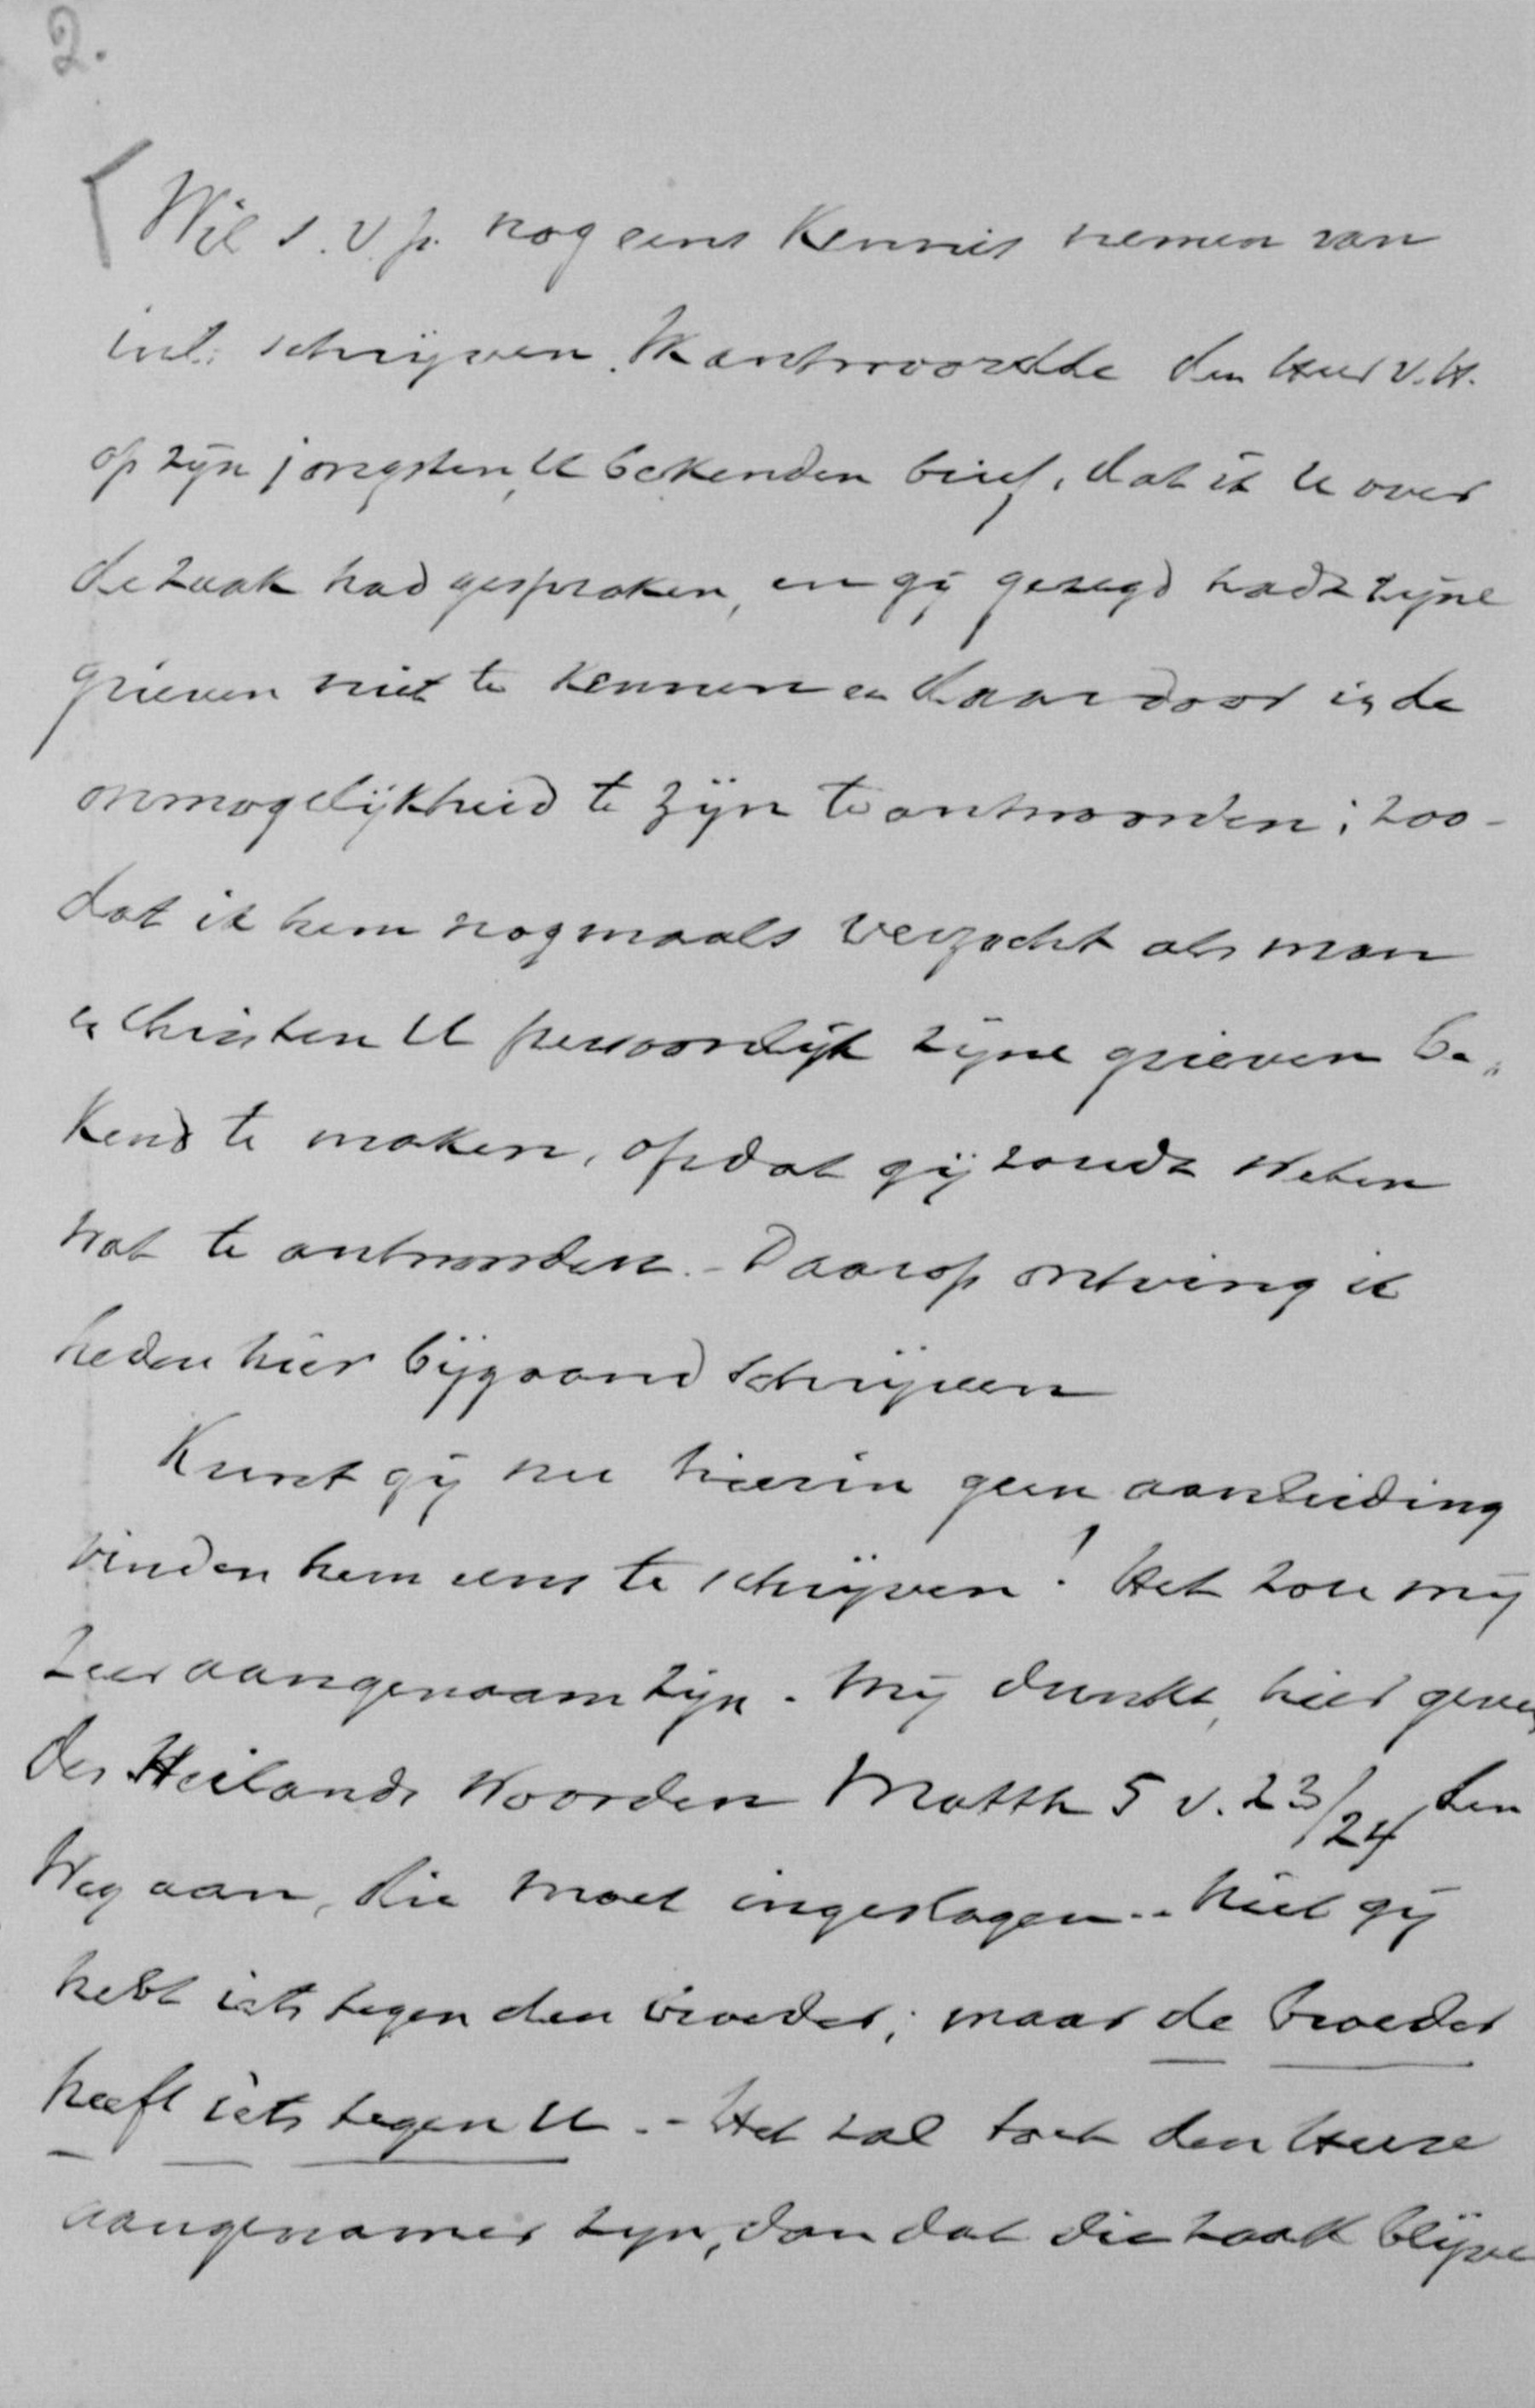 2.
Wil s.v.p. nog eens kennis nemen van
incl. schrijven. Ik antwoordde den Heer v. H.
op zijn jongsten, U bekenden brief, dat ik U over
de zaak had gesproken, en gij gezegd hadt zijne
grieven niet te kennen en daardoor in de
onmogelijkheid te zijn te antwoorden; zoo-
dat ik hem nogmaals verzocht als man
en Christen U persoonlijk zijne grieven be„
kend te maken, opdat gij zoudt weten
wat te antwoorden. - Daarop ontving ik
heden hier bijgaand schrijven
Kunt gij nu hierin geen aanleiding
vinden hem eens te schrijven? Het zou mij
zeer aangenaam zijn. Mij dunkt, hier geven
des Heilands woorden Matth 5 v. 23/24 den
weg aan, die moet ingeslagen. - Niet gij
hebt iets tegen den broeder; maar de broeder
heeft iets tegen U. - Het zal toch den Heere
aangenamer zijn, dan dat die zaak blijve